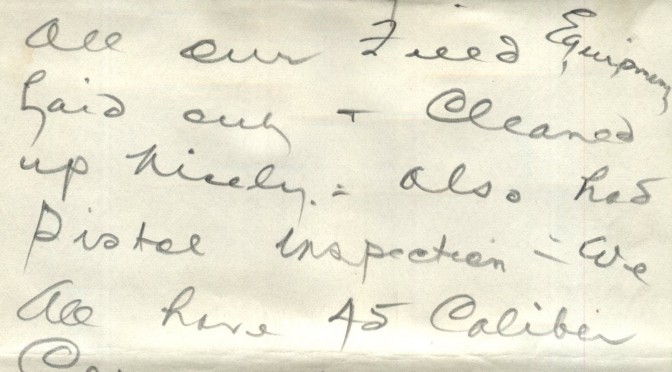 All our Field Equipment
Laid out + Cleaned
up Nicely. = also had
Pistol inspection = We
All have 45 Caliber